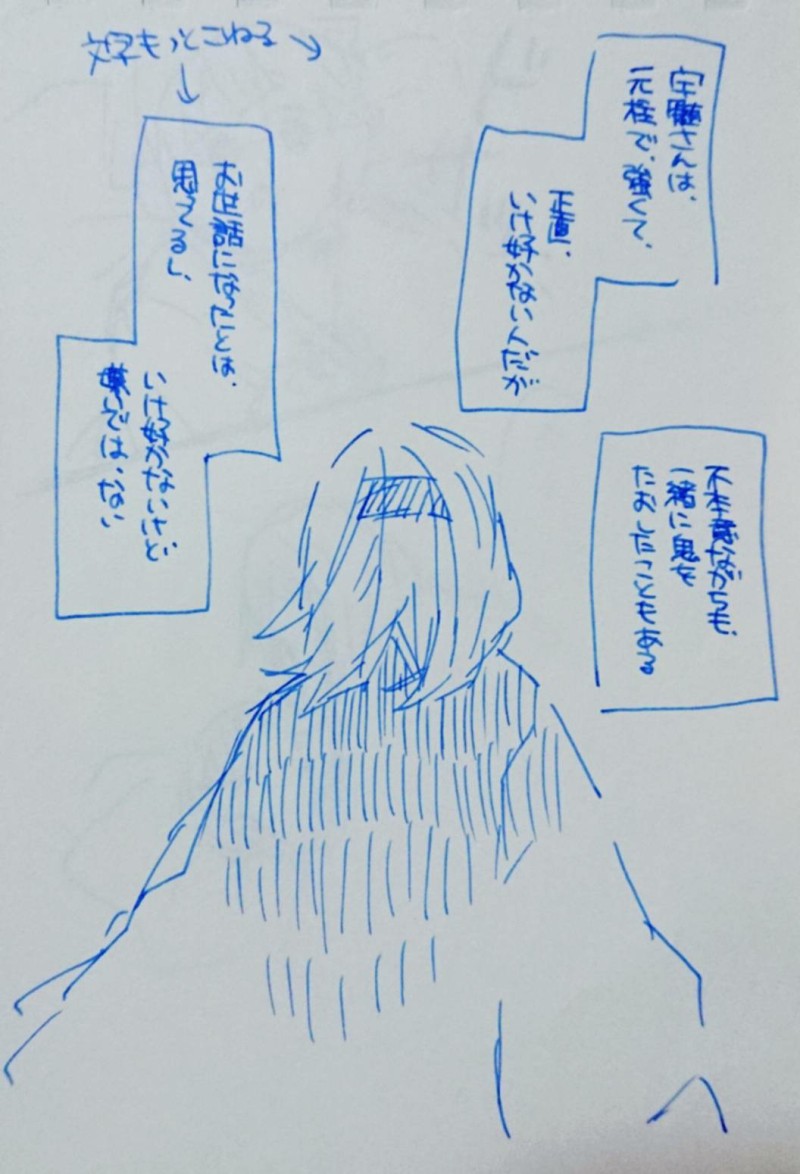 文字もっとこねる
宇髄さんは、
元柱で、強くて、
正直、
いけ好かない人だが
不本意ながらも、
一緒に鬼を
たおしたこともある
お世話になったことは、
思てるし、
いけ好かないけど、
嫌いでは、ない